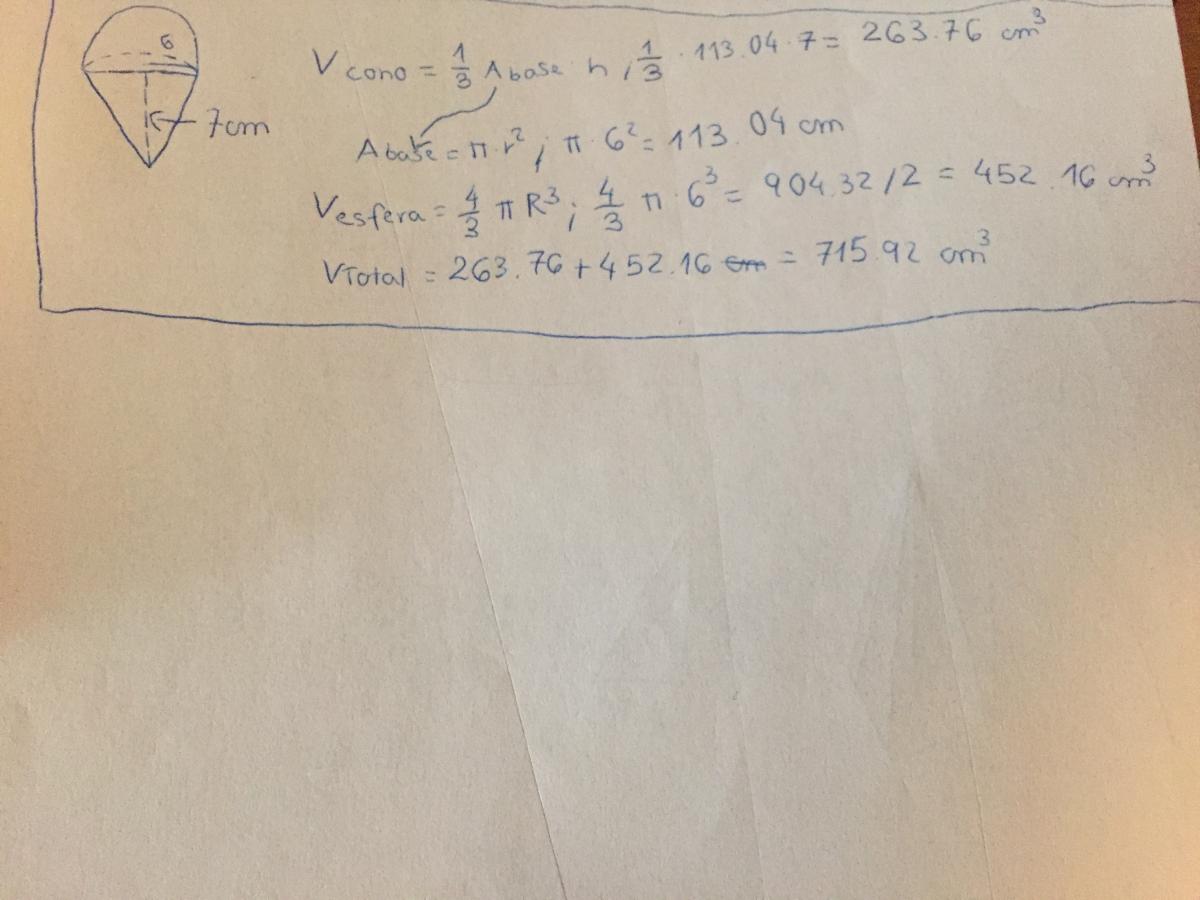 6
7cm
V cono = 1/3 A base h, 1/3 · 113.04 · 7 = 263.76 cm³
A base = π · r²; π · 6² = 113.04 cm
V esfera = 4/3 π R³; 4/3 π · 6³ = 904.32 / 2 = 452.16 cm³
V Total = 263.76 + 452.16 cm = 715.92 cm³